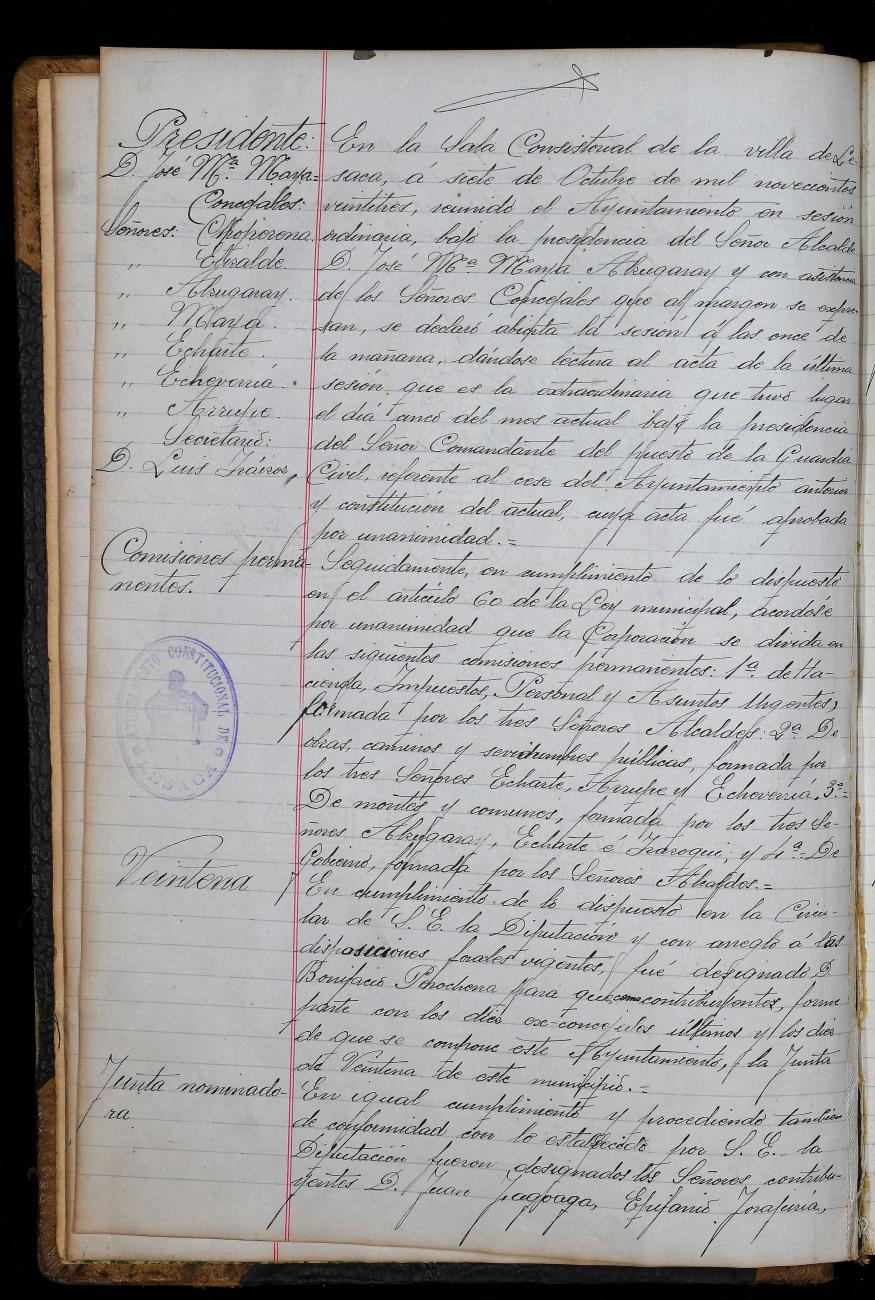 Presidente:
D. José Mª Maya=
Concejales:
Señores:
„ Elizalde.
„ Alzugaray.
„ Maya.
„ Echarte.
„ Echeverría.
„ Arrupe.
Secretario:
D. Luis
En la Sala Consistorial de la villa de Le-
saca, á siete de Octubre de mil novecientos
veintitres, reunido el Ayuntamiento en sesión
ordinaria, bajo la presidencia del Señor Alcalde
D. José Mª Maya Alzugaray y con asistencia
de los Señores Concejales que al margen se expre-
san, se declaró abierta la sesión á las once de
la mañana, dándose lectura al acta de la última
sesión que es la extraordinaria que tuvo lugar
el día cinco del mes actual bajo la presidencia
del Señor Comandante del puesto de la Guardia
Civil, referente al cese del Ayuntamiento anterior
y constitución del actual, cuya acta fué aprobada
por unanimidad.=
Comisiones perma-
nentes.
Seguidamente, en cumplimiento de lo dispuesto
en el artículo 60 de la Ley municipal, acordóse
por unanimidad que la Corporación se divida en
las siguientes comisiones permanentes: 1ª. de Ha-
cienda, Impuestos, Personal y Asuntos Urgentes,
formada por los tres Señores Alcaldes: 2ª De
obras, caminos y servidumbres públicas, formada por
los tres Señores Echarte, Arrupe y Echeverría. 3ª=
De montes y comunes, formada por los tres Se-
ñores Alzugaray, Echarte é Irazoqui; y 4ª= De
Gobierno, formada por los Señores Alcaldes.=
AYUNTAMIENTO CONSTITUCIONAL DE
LESACA
Veintena
En cumplimiento de lo dispuesto en la Circu-
lar de S. E. la Diputación y con arreglo á las
disposiciones forales vigentes, fué designado D.
Bonifacio Perochena para que como contribuyentes, forme
parte con los diez ex-concejales últimos y los diez
de que se compone este Ayuntamiento, la Junta
de Veintena de este municipio.=
Junta nominado-
ra
En igual cumplimiento y procediendo tambien
de conformidad con lo establecido por S. E. la
Diputación fueron designados los Señores contribu-
yentes D. Juan Jugoaga, Epifanio